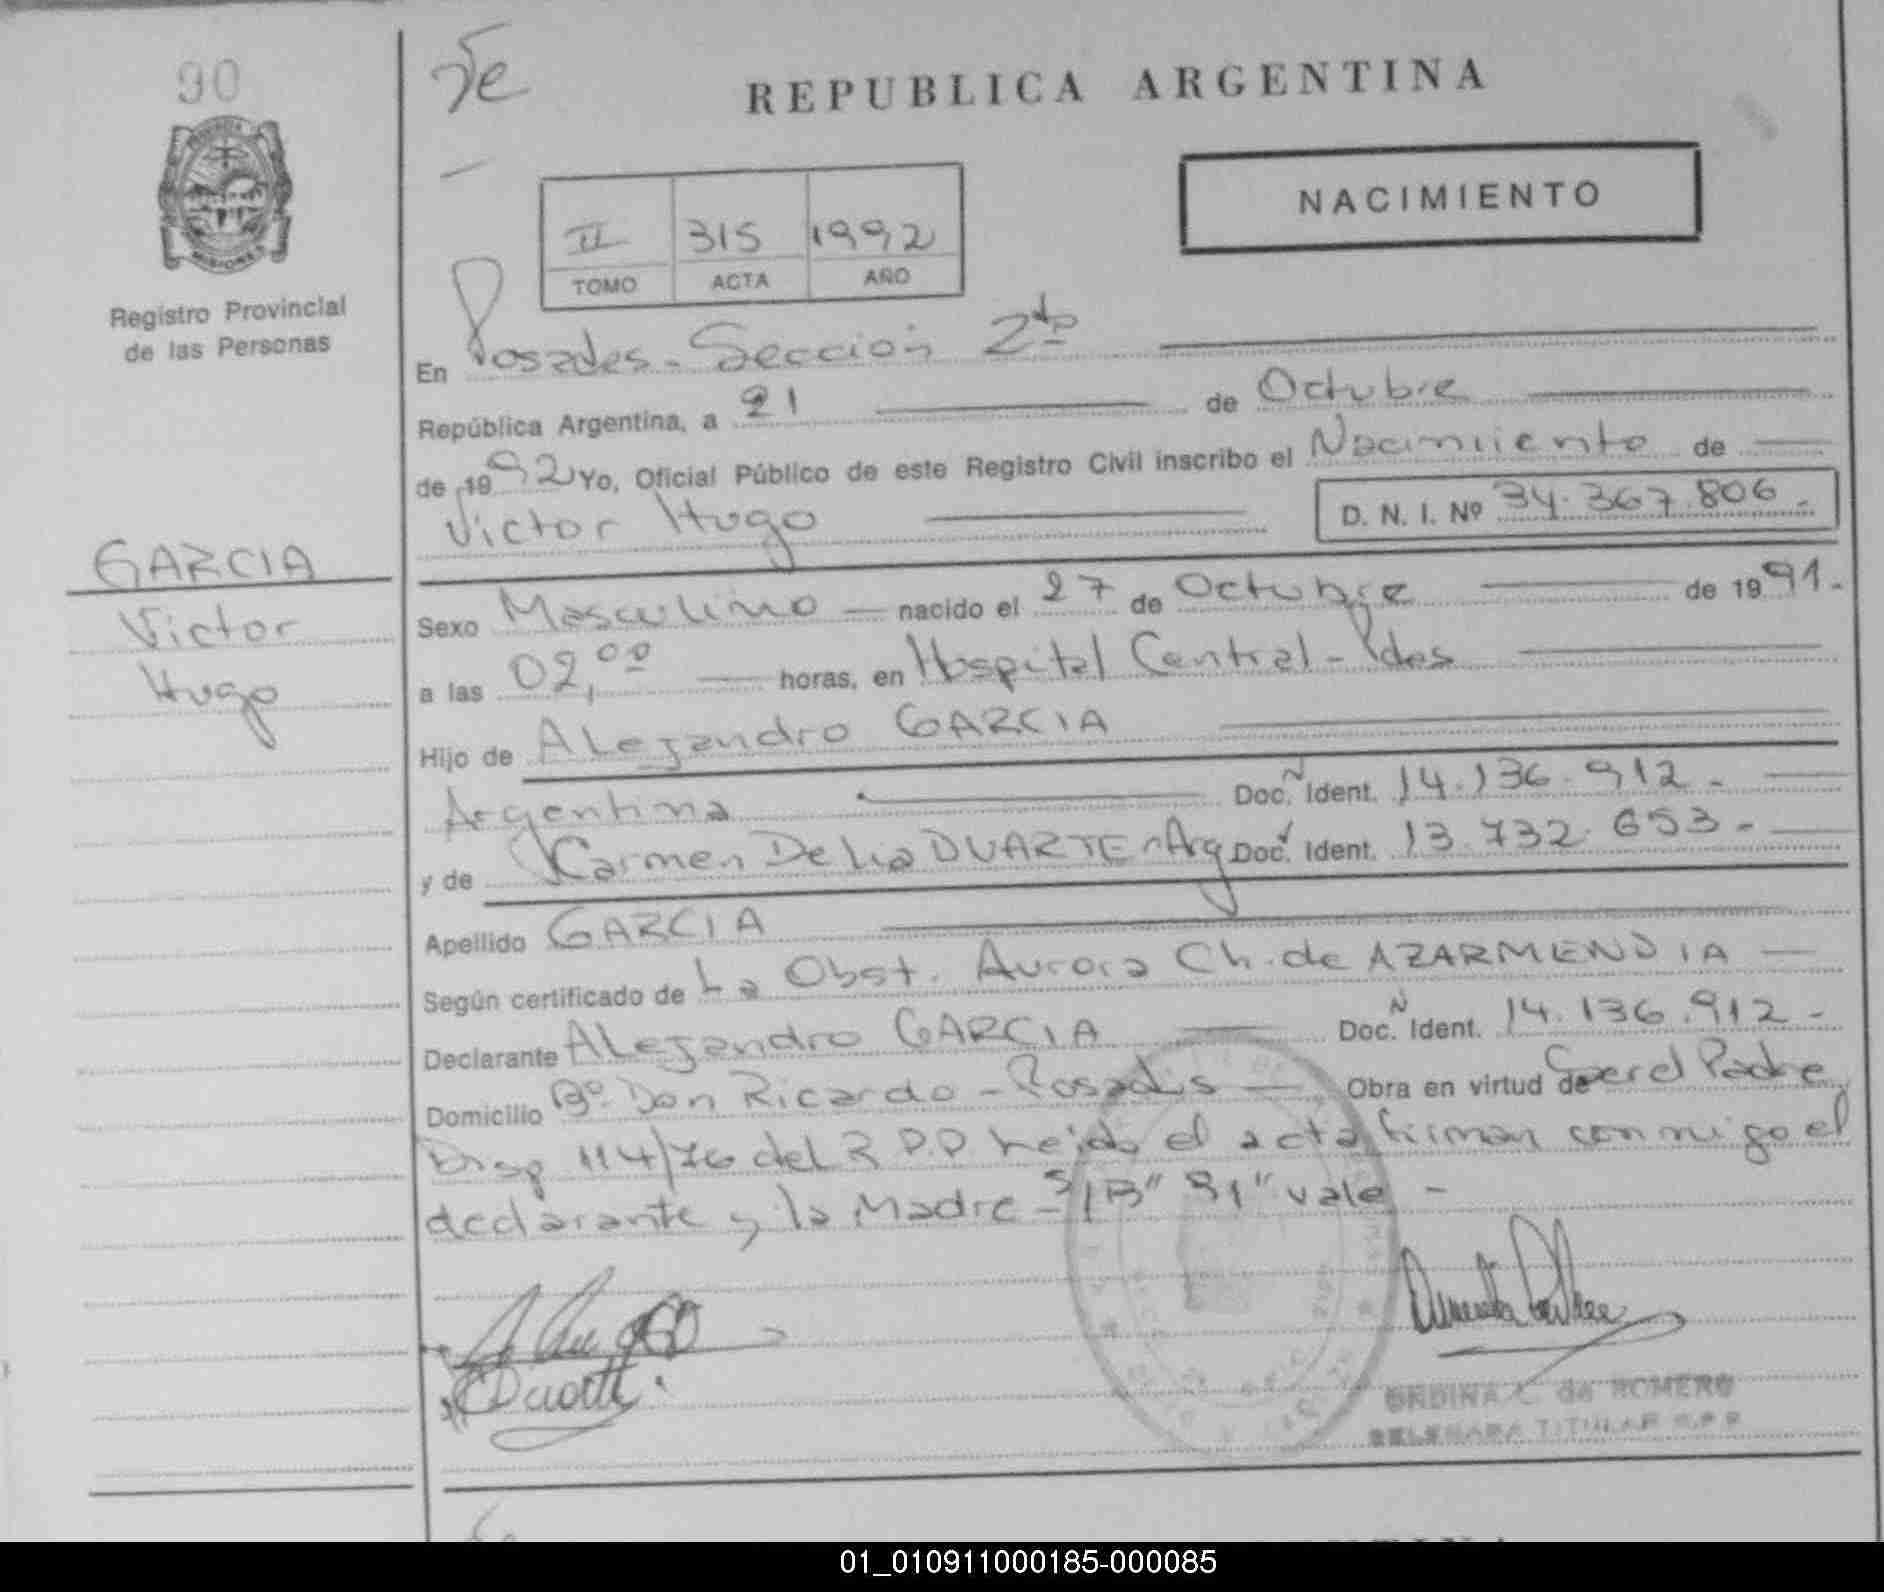 90
Registro Provincial
de las Personas
GARCIA
Victor
Hugo
REPUBLICA ARGENTINA
NACIMIENTO
II 315 1992
TOMO ACTA AÑO
En Posadas - Sección 2da
República Argentina, a 21 de Octubre
de 1992 Yo, Oficial Público de este Registro Civil inscribo el Nacimiento de
Victor Hugo D. N. I. Nº 34.367.806.-
Sexo Masculino nacido el 27 de Octubre de 1991.-
a las 02,00 horas, en Hospital Central - Pdas
Hijo de Alejandro GARCIA
Argentina Doc. N Ident. 14.136.912.-
y de Carmen Delia DUARTE - Arg Doc. N Ident. 13.732.653.-
Apellido GARCIA
Según certificado de La Obst. Aurora Ch. de AZARMENDIA
Declarante Alejandro GARCIA Doc. N Ident. 14.136.912.-
Domicilio Bº. Don Ricardo - Posadas Obra en virtud de Ser el Padre
Disp 114/76 del R.P.P Leida el acta firman conmigo el
declarante y la Madre - S/B" 91" vale -
Duarte
ORDINA C. de ROMERO
DELEGADA TITULAR R.P.P.
01_010911000185-000085